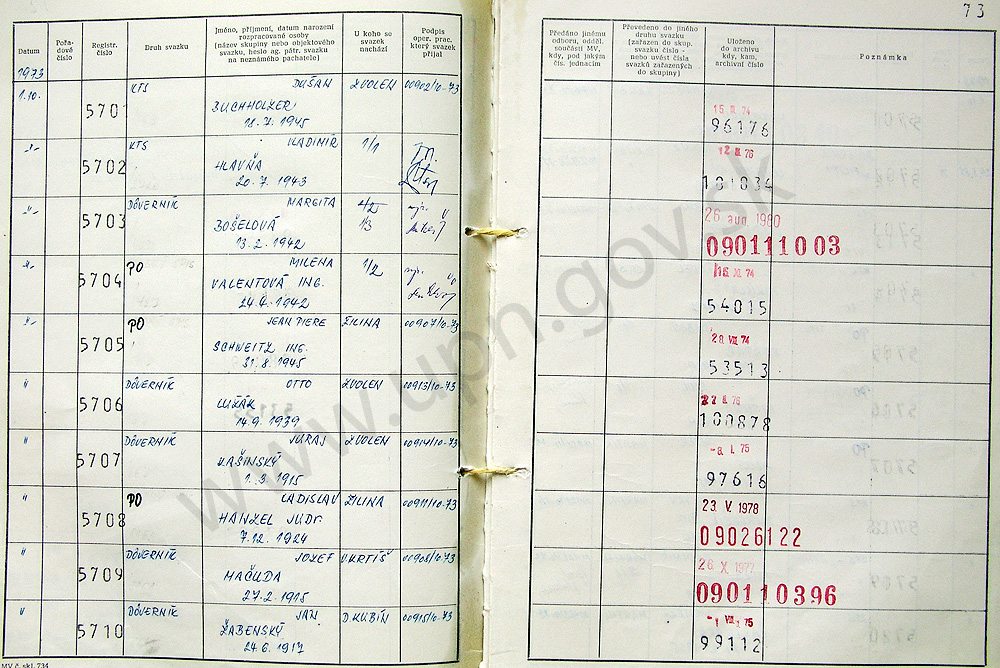 73
Datum
Pořa-
dové
číslo
Registr.
číslo
Druh svazku
Jméno, příjmení, datum narození
rozpracované osoby
(název skupiny nebo objektového
svazku, heslo ag. pátr. svazku
na neznámého pachatele)
U koho se
svazek
nachází
Podpis
oper. prac.
který svazek
přijal
Předáno jinému
odboru, odděl.
součásti MV,
kdy, pod jakým
čís. jednacím
Převedeno do jiného
druhu svazku
(zařazen do skup.
svazku číslo -
nebo uvést čísla
svazků zařazených
do skupiny)
Uloženo
do archivu
kdy, kam,
archivní číslo
Poznámka
1973
1.10. 570 KTS DUŠAN ZVOLEN 00902/10-73
BUCHHOLZER
18.7.1945
74
96176
-"- 5702 KTS VLADIMÍR 1/1
HLAVŇA
20.7.1943
76
101034
-"- 5703 DÔVERNÍK MARGITA 1/3
BOŠELOVÁ
13.2.1942
26 aug 1980
090111003
-"- 5704 PO MILENA 1/2
VALENTOVÁ ING.
1942
74
54015
-"- 5705 PO JEAN PIERE ŽILINA 00907/10-73
SCHWEITZ ING.
31.8.1945
28 VIII 74
53513
" 5706 DÔVERNÍK OTTO ZVOLEN 00913/10-73
LUŽÁK
14.9.1939
76
100878
" 5707 DÔVERNÍK JURAJ ZVOLEN 00914/10-73
KAŠINSKÝ
1.3.1915
-8. I. 75
97616
" 5708 PO LADISLAV ŽILINA 00911/10-73
HANZEL JUDr.
7.12.1924
23 V. 1978
09026122
" 5709 DÔVERNÍK JOZEF V.KRTÍŠ 00908/10-73
MAČUDA
27.2.1915
26 X 1977
090110396
" 5710 DÔVERNÍK JÁN D.KUBÍN 00915/10-73
ŽABENSKÝ
24.6.1917
75
99112
MV č. skl. 734
www.upn.gov.sk